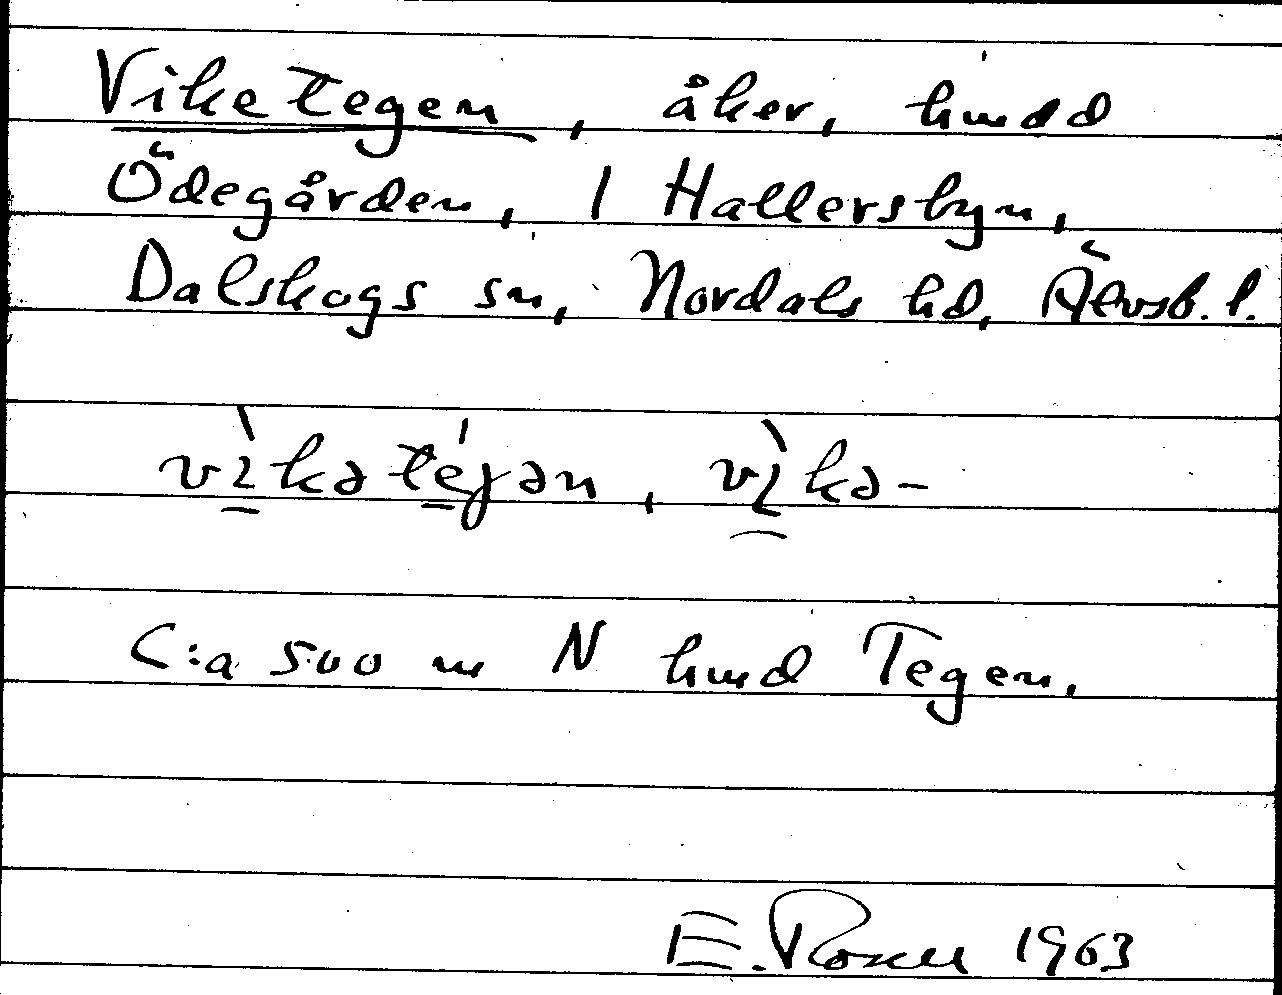 Viketegen, åker, hmdd
Ödegården, 1 Hallersbyn,
Dalskogs sn, Nordals hd, Älvsb. l.
vìkətéjən, vìkə-
C:a 500 m N hmd Tegen.
E. Rosell 1963